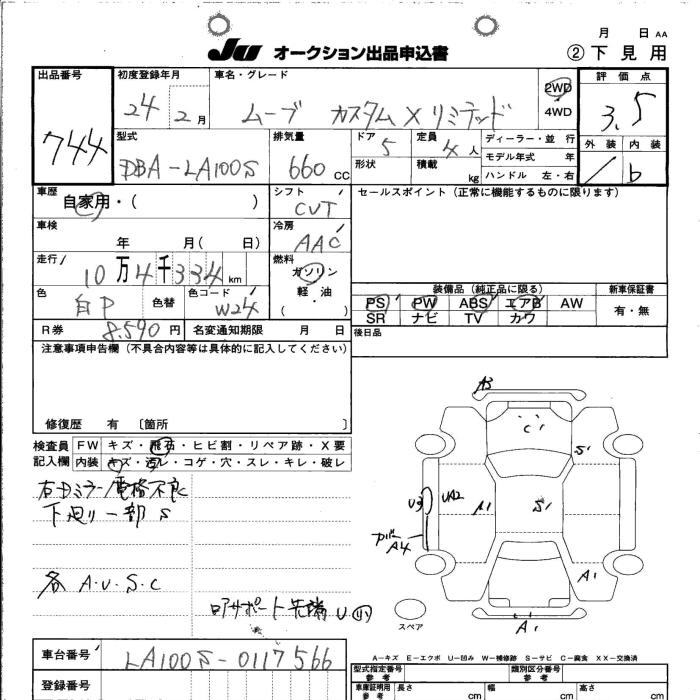 月 日 AA
JU オークション出品申込書 ②下見用
出品番号 初度登録年月 車名・グレード 2WD 評価点
744 24 2月 ムーブ カスタムXリミテッド 4WD 3.5
型式 排気量 ドア 5 定員 4人 ディーラー・並行 外装 内装
DBA-LA100S 660cc 形状 積載 kg モデル年式 年 b
ハンドル 左・右
車歴 シフト セールスポイント(正常に機能するものに限ります)
自家用・( ) CVT
車検 冷房
年 月( 日) AAC
走行 燃料
10万4千334km ガソリン
軽・油
( )
色 色替 色コード 装備品(純正品に限る) 新車保証書
白P W24 PS PW ABS エアB AW 有・無
SR ナビ TV カワ
R券 8,590円 名変通知期限 月 日 後日品
注意事項申告欄(不具合内容等は具体的に記入してください)
修復歴 有 〔箇所 〕
検査員 FW キズ・飛石・ヒビ割・リペア跡・X要
記入欄 内装 キズ・汚レ・コゲ・穴・スレ・キレ・破レ
右ドミラー電格不良
下廻り一部S
各 A.U.S.C
ロアサポート先端U
A3
C'
S'
U3 UA2 A1 S'
カバー
A4
A1
スペア
A1
A-キズ E-エクボ U-凹み W-補修跡 S-サビ C-腐食 XX-交換済
車台番号 LA100S-0117566
型式指定番号 参考 類別区分番号 参考
登録番号
車庫証明用 参考 長さ cm 幅 cm 高さ cm